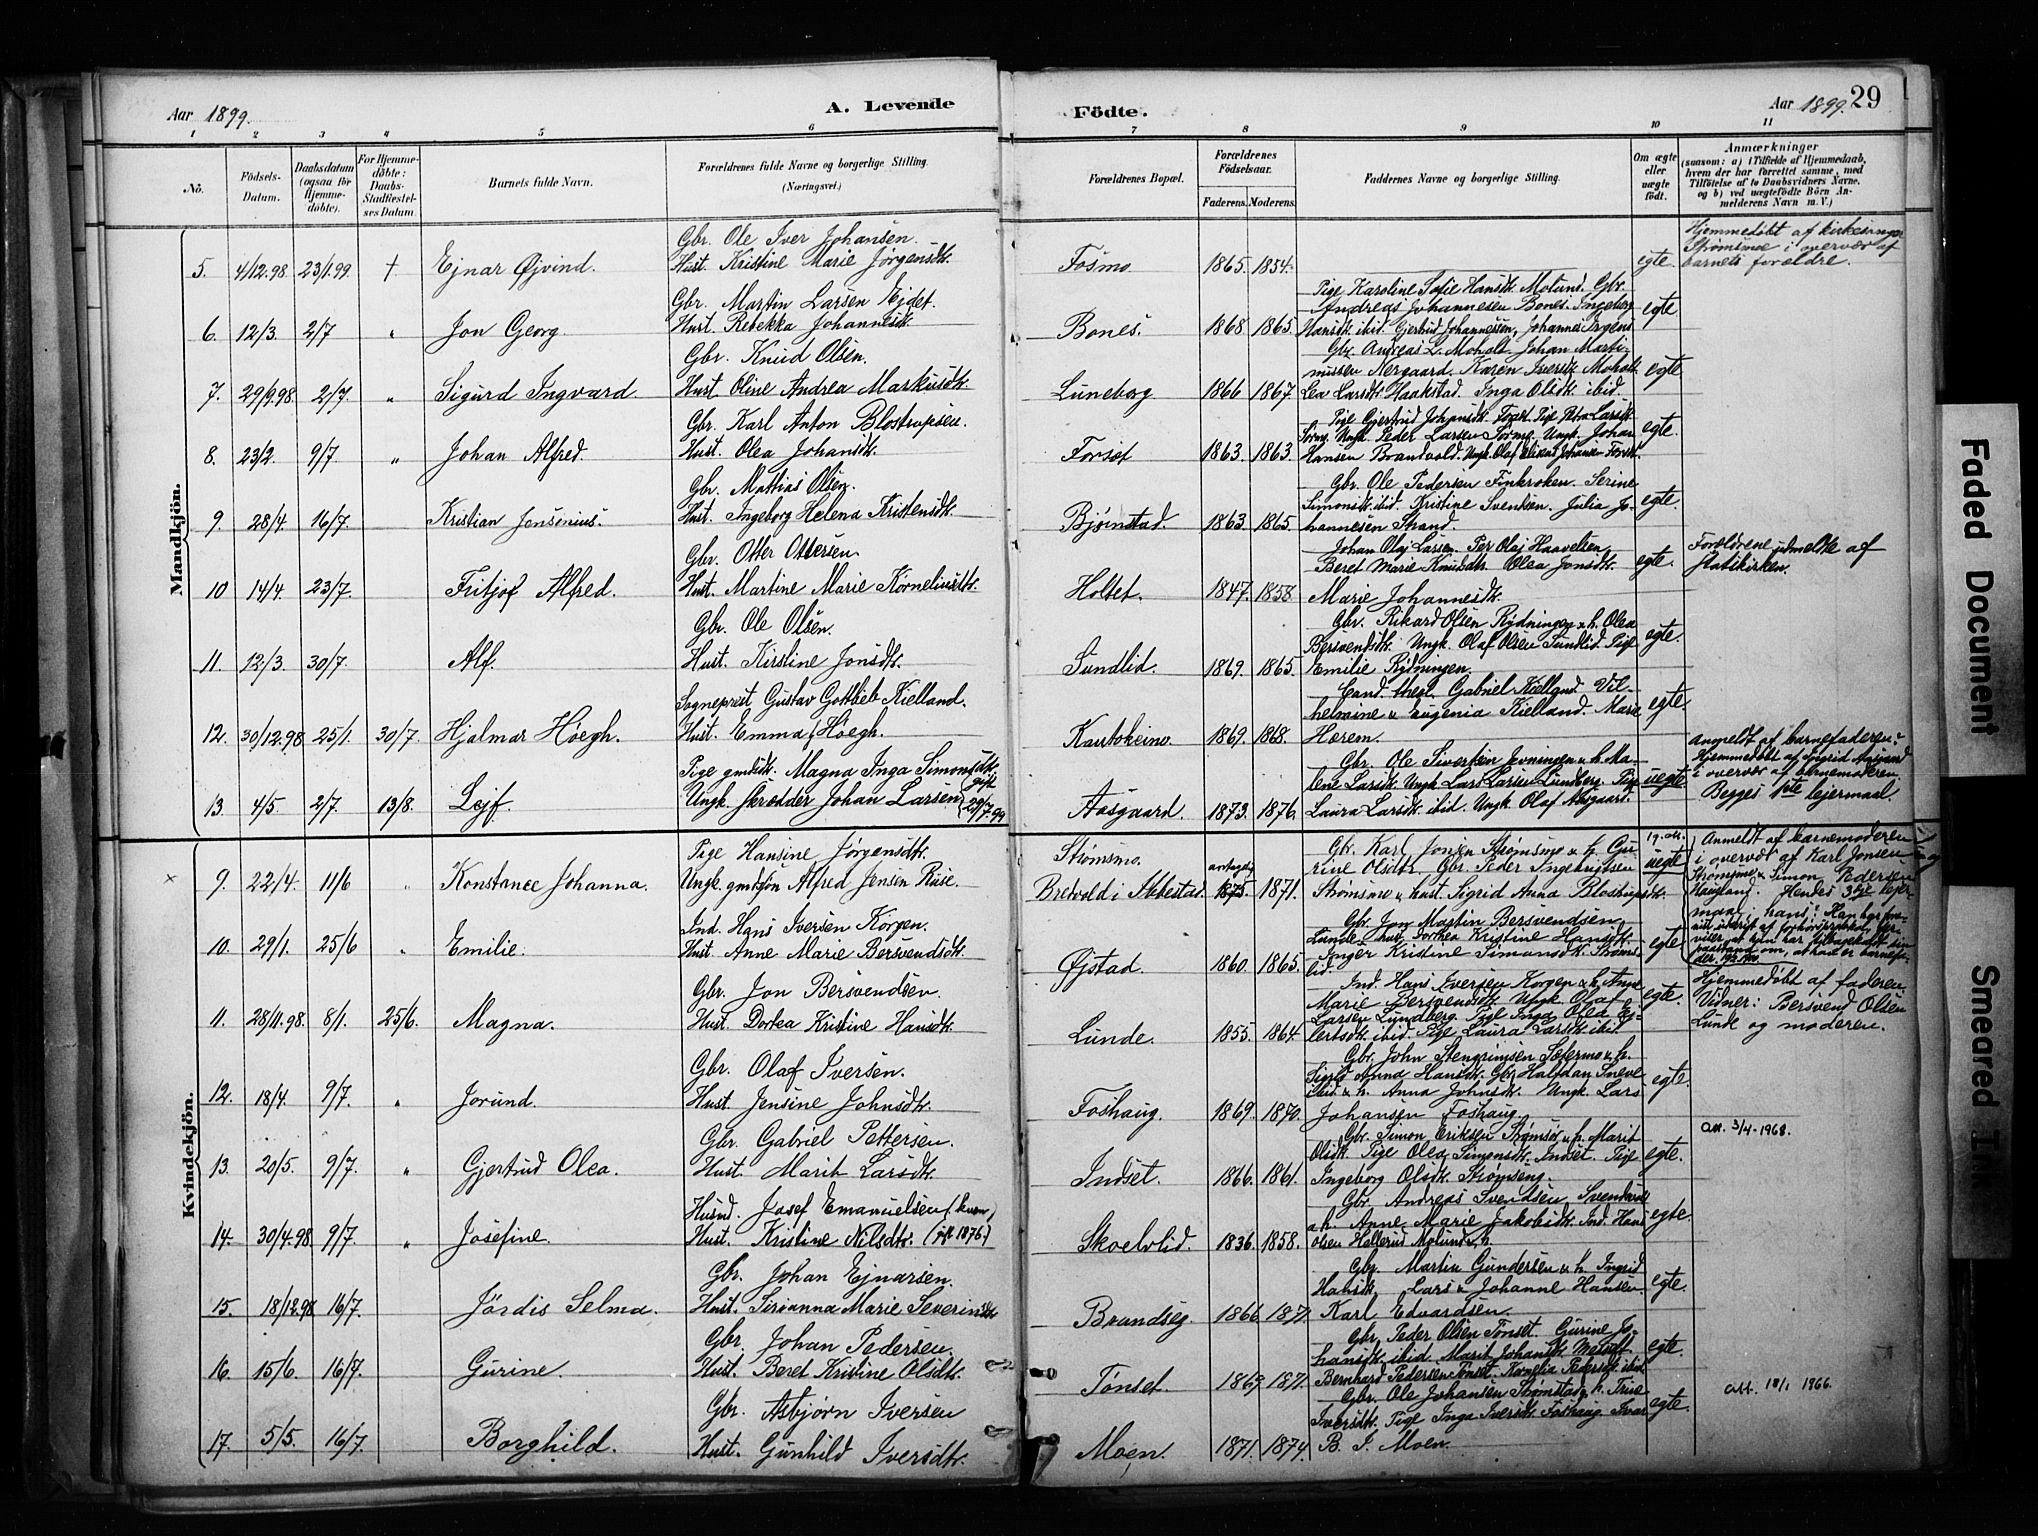 Aar 1899.
A. Levende
Födte.
Aar 1899. 29
1 2 3 4 5 6 7 8 9 10 11
No.
Födsels-Datum.
Daabsdatum (ogsaa för Hjemmedöbte).
For Hjemmedöbte: Daabs-Stadfæstelses Datum.
Barnets fulde Navn.
Forældrenes fulde Navne og borgerlige Stilling. (Næringsvei.)
Forældrenes Bopæl.
Forældrenes Födselsaar.
Faderens. Moderens.
Faddernes Navne og borgerlige Stilling.
Om ægte eller uægte födt.
Anmærkninger (saasom: a) i Tilfælde af Hjemmedaab, hvem der har forrettet samme, med Tilföielse af to Daabsvidners Navne, og b) ved uægtefödte Börn Anmelderens Navn m. V.)
Mandkjön.
Gbr. Ole Iver Johansen.
5. 4/12.98 23/1.99. † Ejnar Øjvind. Hust. Kristine Marie Jørgensdtr. Fosmo. 1865. 1854. egte.
Hjemmedøbt af kirkesanger
Strømsmoe i overvær af
barnets forældre.
Gbr. Martin Larsen Ejdet.
6. 12/3. 2/7 " Jon Georg. Hust. Rebekka Johannesdtr. Bones. 1868. 1865. egte
Pige Karoline Sofie Hansdtr. Molund. Gbr.
Andreas Johannesen Bones. Ingeborg
Hansdtr. ibid. Gjertrud Johannessen, Johannes
Gbr. Knud Olsen.
7. 29/9.98. 2/7. " Sigurd Ingvard Hust. Oline Andrea Markusdtr. Luneborg 1866 1867. egte
Gbr. Andreas L. Moholt. Johan Marti-
nussen Nergaard. Karen Iversdtr. Moholt
Lea Larsdtr. Haakstad. Inga Olsdtr. ibid.
Gbr. Karl Anton Blostrupsen.
8. 23/2. 9/7. " Johan Alfred. Hust. Olea Johansdtr. Forset 1863. 1863. egte.
Pige Gjertrud Johansdtr. Forset. Pige Petra Larsdtr.
Sørmo. Ungk. Peder Larsen Sørmo. Ungk. Johan
Hansen Brandvold. Ungk. Olaf Johansen Forset.
Gbr. Mattias Olsen.
9. 28/4. 16/7. Kristian Jensenius. Hust. Ingeborg Helena Kristensdtr. Bjørnstad. 1863. 1865. egte.
Gbr. Ole Pedersen Finkroken. Serine
Simonsdtr. ibid. Kristine Svendsen. Julia Jo-
hannesen Strand.
Gbr. Otter Ottersen
10 14/4. 23/7. Fritjof Alfred. Hust. Martine Marie Korneliusdtr. Holtet. 1847. 1858 egte.
Johan Olaj Larsen. Per Olaj Haavelsen
Beret Marie Knudsdtr. Olea Jonsdtr.
Marie Johannesdtr.
Forældrene udmeldte af
statskirken.
Gbr. Ole Olsen.
11. 12/3. 30/7. Alf. Hust. Kirstine Jonsdtr. Sundlid. 1869. 1865. egte.
Gbr. Rikard Olsen Rydningen u. h. Olea
Bersvendsdtr. Ungk. Olaf Olsen Sundlid. Pige
Emilie Rydningen.
Sogneprest Gustav Gottlieb Kielland.
12. 30/12.98 25/1. 30/7. Hjalmar Höegh. Hust. Emma f. Höegh. Kautokeino. 1869. 1868. egte.
Cand. theol. Gabriel Kielland Vil-
helmine u Eugenia Kielland. Marie
Hærem.
Pige gmdsdtr. Magna Inga Simonsdtr.
13. 4/5. 2/7. 13/8. Lejf. Ungk. skrædder Johan Larsen (gift 29/7.99 Aasgaard. 1873. 1876. uegte
Gbr. Ole Sivertsen Jevningen u. h. Ma-
lene Larsdtr. Ungk Lars Larsen Lundberg. Pige
Laura Larsdtr. ibid. Ungk. Olaf Aasgaard.
Anmeldt af barnefaderen.
Hjemmedøbt af Sigrid Aasgaard
i overvær af barnemoderen.
Begges 1ste lejermaal.
Kvindekjön.
Pige Hansine Jørgensdtr. Strømsmo.
× 9. 22/4. 11/6 " Konstance Johanna. Ungk. gmdsøn Alfred Jensen Riise. Bredvold i Ibbestad. 1875. 1871. uegte
Gbr. Karl Jonsen Strømsmoe u. h. Gu-
rine Olsdtr. Gbr. Peder Ingebrigtsen
Strømsmo u hust. Sigrid Anna Blostrupsdtr.
Anmeldt af barnemoderen
i overvær af Karl Jonsen
Strømsmo u Simon Pedersen
Haugland. Hendes 3die lejer-
maal; hans?
Ind. Hans Iversen Korgen.
10. 29/1. 25/6 " Emilie. Hust. Anne Marie Bersvendsdtr. Øjstad. 1860. 1865. egte
Gbr. Jon Martin Bersvendsen
Lunde u hust Dortea Kristine Hansdtr.
Inger Kristine Simonsdtr. Strøms-
lid.
Gbr. Jon Bersvendsen.
11. 28/11.98. 8/1. 25/6. Magna. Hust. Dortea Kristine Hansdtr. Lunde. 1855. 1864. egte.
Ind. Hans Iversen Korgen u. h. Anne
Marie Bersvendsdtr. Ungk Olaf
Larsen Lundberg. Pige Inga Olea Ej-
lertsdtr. ibid. Pige Laura Larsdtr. ibid
Hjemmedøbt af faderen
Vidner: Bersvend Olsen
Lunde og moderen.
Gbr. Olaf Iversen.
12. 18/4. 9/7. " Jorund. Hust. Jensine Johnsdtr. Foshaug. 1869. 1870. egte.
Gbr. John Stengrimsen Sætermo u. h.
Sigrid Anna Hansdtr. Gbr Halfdan Sneve
ibid. u h. Anna Johnsdtr. Ungk. Lars
Johansen Foshaug.
Gbr. Gabriel Pettersen.
13. 20/5. 9/7. " Gjertrud Olea. Hust. Marit Larsdtr. Indset. 1866. 1861. egte.
Gbr. Simon Eriksen Strømsør u. h. Marit
Olsdtr. Pige Olea Simonsdtr. Indset. Pige
Ingeborg Olsdtr. Strømseng.
att. 3/4-1968.
Husmd. Josef Emanuelsen (kvæn)
14. 30/4.98. 9/7. " Josefine. Hust. Kristine Nilsdtr. (gift 1876.) Skoelvlid. 1836. 1858. egte.
Gbr. Andreas Svendsen Svendlund
u h. Anne Marie Jakobsdtr. Ind. Hans
Olsen Hellerud Molund u. h.
Gbr. Johan Ejnarsen.
15. 18/12.98 16/7. Jördis Selma. Hust. Sirianna Marie Severinsdtr Brandseg. 1866 1871. egte.
Gbr. Martin Gundersen u h. Ingrid
Hansdtr. Lars u Johanne Hansen.
Karl Edvardsen.
Gbr. Johan Pedersen.
16. 15/6. 16/7. Gurine. Hust. Beret Kristine Olsdtr. Tønset. 1869. 1871. egte.
Gbr. Peder Olsen Tønset. Gurine Jo-
hansdtr. ibid. Marit Johansdtr.
Bernhard Pedersen Tønset. Kornelia Pedersdtr. ibid
Gbr. Asbjørn Iversen
17. 5/5. 16/7. Borghild. Hust. Gunhild Iversdtr. Moen. 1871. 1874. egte.
Gbr. Ole Johansen Strømstad u. h. Trine
Iversdtr. Pige Inga Iversdtr. Foshaug. Ivar
B. I. Moen.
att. 18/1 1966.
Faded Document
Smeared